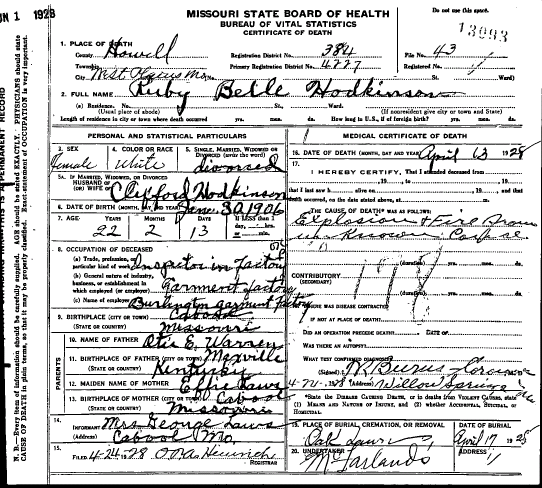 UN 1 1928
MISSOURI STATE BOARD OF HEALTH
BUREAU OF VITAL STATISTICS
CERTIFICATE OF DEATH
Do not use this space.
13093
1. PLACE OF DEATH
County Howell
Registration District No. 384
File No. 43
Township
Primary Registration District No. 4227
Registered No.
City West Plains Mo.
St. Ward)
2. FULL NAME Ruby Belle Hodkinson
(a) Residence. No. St., Ward.
(Usual place of abode) (If nonresident give city or town and State)
Length of residence in city or town where death occurred yrs. mos. ds. How long in U.S., if of foreign birth? yrs. mos. ds.
PERSONAL AND STATISTICAL PARTICULARS
3. SEX Female
4. COLOR OR RACE White
5. SINGLE, MARRIED, WIDOWED OR DIVORCED (write the word) divorced
5A. IF MARRIED, WIDOWED, OR DIVORCED
HUSBAND OF (OR) WIFE OF Clifford Hodkinson
6. DATE OF BIRTH (MONTH, DAY AND YEAR) Jan. 30, 1906
7. AGE YEARS 22 MONTHS 2 DAYS 13 If LESS than 1 day, hrs. or min.
8. OCCUPATION OF DECEASED
(a) Trade, profession, or particular kind of work Inspector in Factory
(b) General nature of industry, business, or establishment in which employed (or employer) Garment factory
(c) Name of employer Burlington garment factory
9. BIRTHPLACE (CITY OR TOWN) Cabool
(STATE OR COUNTRY) Missouri
PARENTS
10. NAME OF FATHER Otis E. Warren
11. BIRTHPLACE OF FATHER (CITY OR TOWN)
(STATE OR COUNTRY) Kentucky
12. MAIDEN NAME OF MOTHER Effie Laws
13. BIRTHPLACE OF MOTHER (CITY OR TOWN) Cabool
(STATE OR COUNTRY) Missouri
14. INFORMANT Mrs George Laws
(Address) Cabool Mo.
15. FILED 4-24-1928
REGISTRAR
MEDICAL CERTIFICATE OF DEATH
16. DATE OF DEATH (MONTH, DAY AND YEAR) April 13 1928
17. I HEREBY CERTIFY, That I attended deceased from
19 , to , 19
that I last saw h alive on , 19 , and that
death occurred, on the date stated above, at m.
THE CAUSE OF DEATH* WAS AS FOLLOWS:
Explosion & Fire from
unknown Cause
(duration) yrs. mos. ds.
CONTRIBUTORY
(SECONDARY)
(duration) yrs. mos. ds.
WHERE WAS DISEASE CONTRACTED
IF NOT AT PLACE OF DEATH?
DID AN OPERATION PRECEDE DEATH? DATE OF
WAS THERE AN AUTOPSY?
WHAT TEST CONFIRMED DIAGNOSIS?
(Signed) Burns Coroner
4-21-, 1928 (Address) Willow Springs Mo
*State the DISEASE CAUSING DEATH, or in deaths from VIOLENT CAUSES, state
(1) MEANS AND NATURE OF INJURY, and (2) whether ACCIDENTAL, SUICIDAL, or
HOMICIDAL.
19. PLACE OF BURIAL, CREMATION, OR REMOVAL Oak Lawn
DATE OF BURIAL April 17 1928
20. UNDERTAKER McFarlands
ADDRESS
N. B.—Every item of information should be carefully supplied. AGE should be stated EXACTLY. PHYSICIANS should state
CAUSE OF DEATH in plain terms, so that it may be properly classified. Exact statement of OCCUPATION is very important.